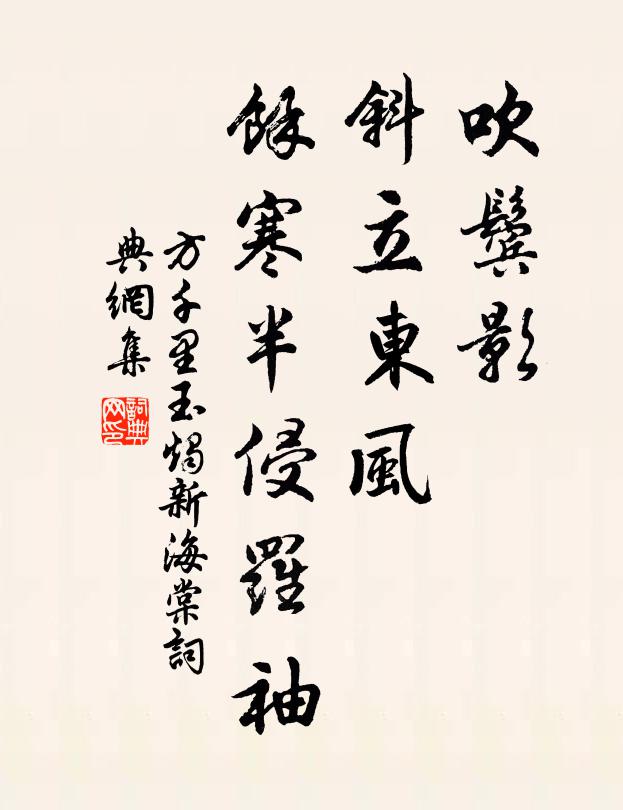 吹鬢影
斜立東風
餘寒半侵羅袖
方千里玉燭新海棠詞
典網集
詞典网印